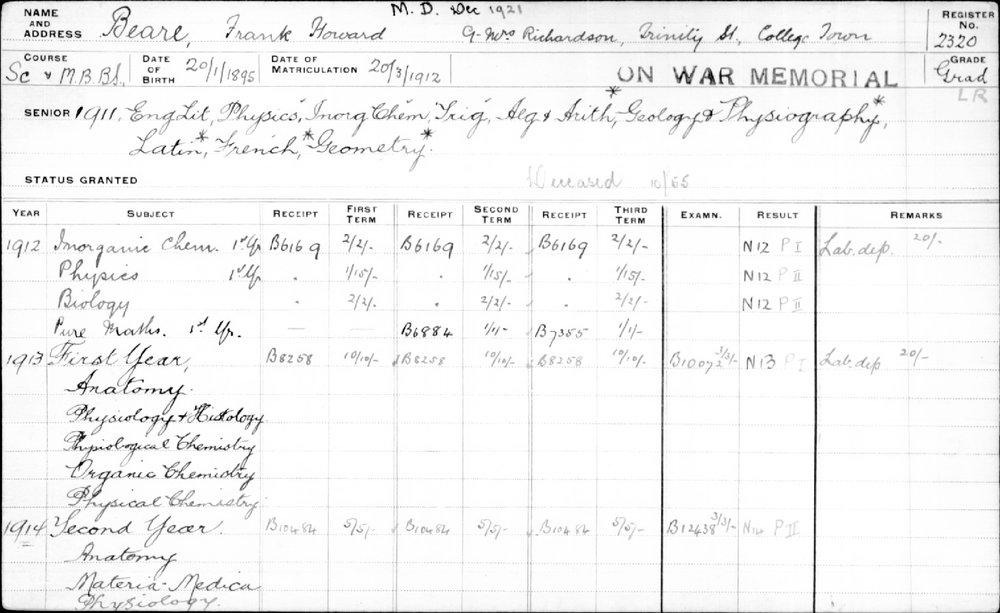 M. D. Dec 1921
NAME AND ADDRESS Beare, Frank Howard C-Mrs Richardson, Trinity St, College Town REGISTER No. 2320
COURSE Sc & M.B.B.S. DATE OF BIRTH 20/1/1895 DATE OF MATRICULATION 20/3/1912 ON WAR MEMORIAL GRADE Grad
LR
SENIOR 1911, Eng Lit, Physics, Inorg Chem, Trig, Alg & Arith, Geology & Physiography*,
Latin*, French*, Geometry*.
STATUS GRANTED Deceased 10/55
YEAR SUBJECT RECEIPT FIRST TERM RECEIPT SECOND TERM RECEIPT THIRD TERM EXAMN. RESULT REMARKS
1912 Inorganic Chem. 1st Yr B6169 2/2/- B6169 2/2/- B6169 2/2/- N12 P I Lab. dep. 20/-
Physics 1st Yr . 1/15/- . 1/15/- . 1/15/- N12 P II
Biology . 2/2/- . 2/2/- . 2/2/- N12 P II
Pure Maths. 1st Yr. — — B6884 1/1/- B7355 1/1/-
1913 First Year, B8258 10/10/- B8258 10/10/- B8258 10/10/- B10072 3/3/- N13 P I Lab. dep 20/-
Anatomy.
Physiology & Histology
Physiological Chemistry
Organic Chemistry
Physical Chemistry
1914 Second Year. B10484 5/5/- B10484 5/5/- B10484 5/5/- B12438 3/3/- N14 P II
Anatomy
Materia-Medica
Physiology.